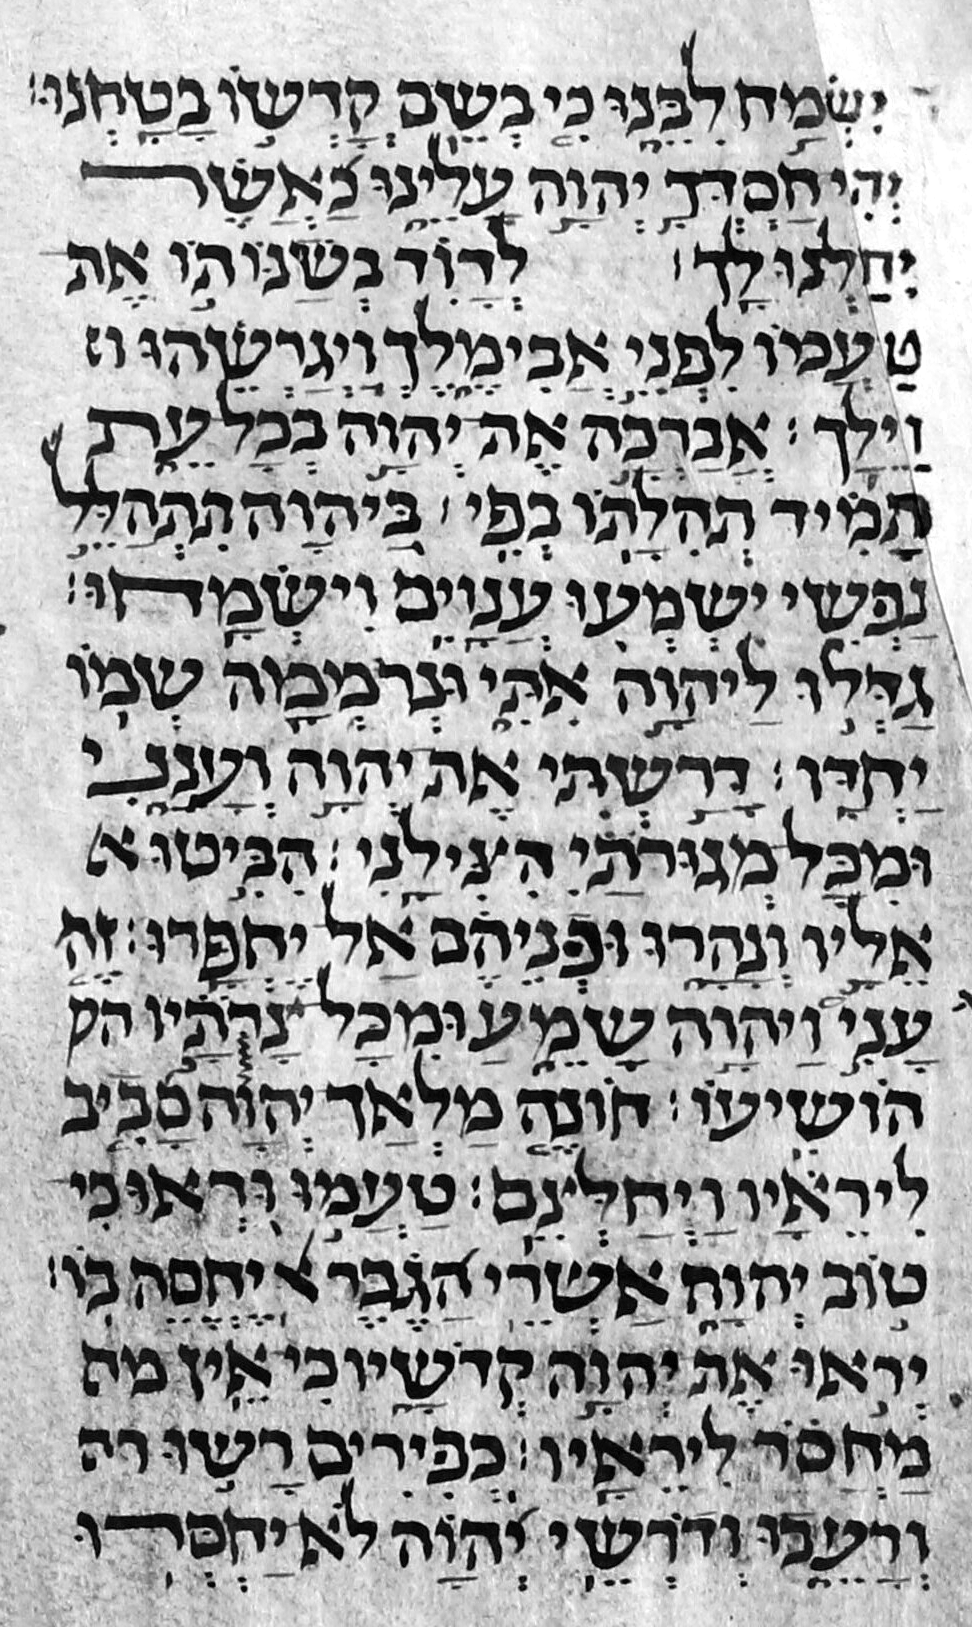 יִשְׂמַח לִבֵּנוּ כִּי בְשֵׁם קָדְשׁוֹ בָטָחְנוּ׃
יְהִי חַסְדְּךָ יְהוָה עָלֵינוּ כַּאֲשֶׁר
יִחַלְנוּ לָךְ׃ לְדָוִד בְּשַׁנּוֹתוֹ אֶת
טַעְמוֹ לִפְנֵי אֲבִימֶלֶךְ וַיְגָרֲשֵׁהוּ וי
וַיֵּלַךְ׃ אֲבָרְכָה אֶת יְהוָה בְּכָל עֵת
תָּמִיד תְּהִלָּתוֹ בְּפִי׃ בַּיהוָה תִּתְהַלֵּל
נַפְשִׁי יִשְׁמְעוּ עֲנָוִים וְיִשְׂמָחוּ׃
גַּדְּלוּ לַיהוָה אִתִּי וּנְרוֹמְמָה שְׁמוֹ
יַחְדָּו׃ דָּרַשְׁתִּי אֶת יְהוָה וְעָנָנִי
וּמִכָּל מְגוּרֹתַי הִצִּילָנִי׃ הִבִּיטוּ א
אֵלָיו וְנָהָרוּ וּפְנֵיהֶם אַל יֶחְפָּרוּ׃ זֶה
עָנִי וַיהוָה שָׁמֵעַ וּמִכָּל צָרֹתָיו הס
הוֹשִׁיעוֹ׃ חוֹנֶה מַלְאַךְ יְהוָה סָבִיב
לִירֵאָיו וַיְחַלְּצֵם׃ טַעֲמוּ וּרְאוּ כִּי
טוֹב יְהוָה אַשְׁרֵי הַגֶּבֶר יֶחֱסֶה בּוֹ׃
יְראוּ אֶת יְהוָה קְדֹשָׁיו כִּי אֵין מח
מַחְסוֹר לִירֵאָיו׃ כְּפִירִים רָשׁוּ ורה
וְרָעֵבוּ וְדֹרְשֵׁי יְהוָה לֹא יַחְסְרוּ